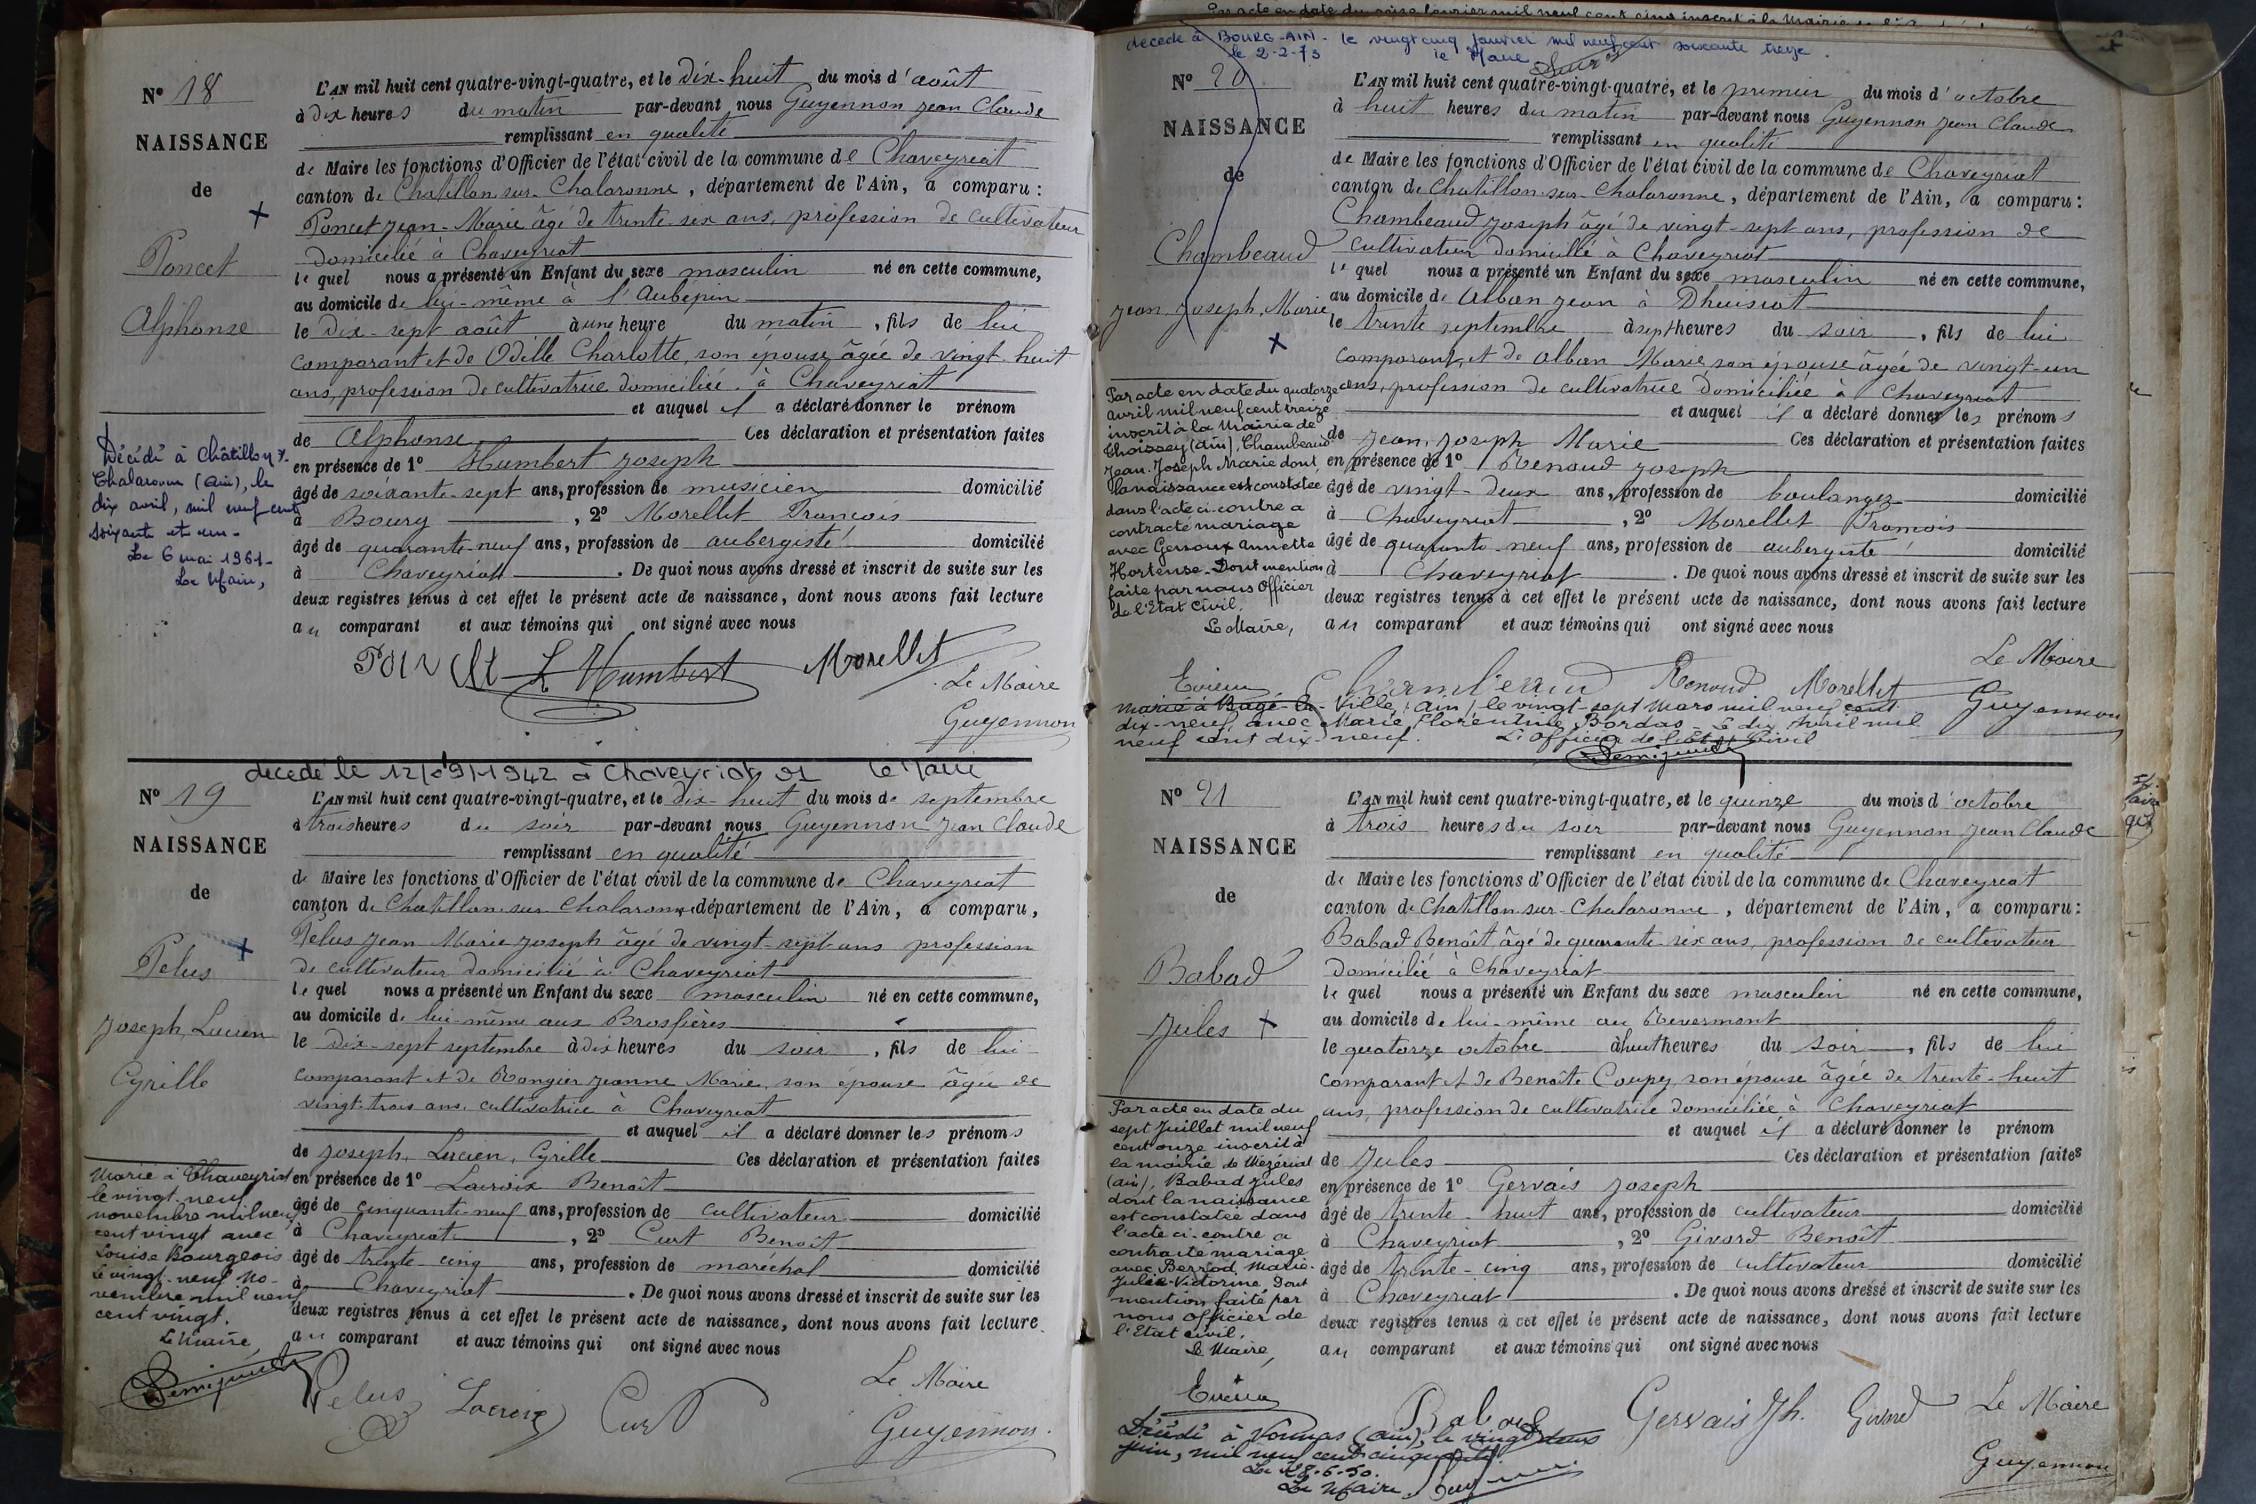 N° 18
NAISSANCE
de
Poncet
Alphonse
Décédé à Châtillon s.
Chalaronne (Ain), le
dix avril, mil neuf cent
soixante et un -
Le 6 mai 1961-
Le Maire,
L'AN mil huit cent quatre-vingt-quatre, et le dix-huit du mois d'août
à dix heures du matin par-devant nous Guyennon Jean Claude
remplissant en qualité
de Maire les fonctions d'Officier de l'état civil de la commune de Chaveyriat
canton de Chatillon-sur-Chalaronne, département de l'Ain, a comparu :
Poncet Jean-Marie âgé de trente-six ans, profession de cultivateur
domicilié à Chaveyriat
lequel nous a présenté un Enfant du sexe masculin né en cette commune,
au domicile de lui-même à l'Aubépin
le dix-sept août à une heure du matin, fils de lui
comparant et de Odille Charlotte, son épouse âgée de vingt-huit
ans, profession de cultivatrice domiciliée à Chaveyriat
et auquel il a déclaré donner le prénom
de Alphonse Ces déclaration et présentation faites
en présence de 1° Humbert Joseph
âgé de soixante-sept ans, profession de musicien domicilié
à Bourg, 2° Morellet François
âgé de quarante-neuf ans, profession de aubergiste domicilié
à Chaveyriat. De quoi nous avons dressé et inscrit de suite sur les
deux registres tenus à cet effet le présent acte de naissance, dont nous avons fait lecture
au comparant et aux témoins qui ont signé avec nous
Poncet J. Humbert Morellet
Le Maire
Guyennon
décédé le 12/09/1942 à Chaveyriat 01 le Maire
N° 19
NAISSANCE
de
Pelus
Joseph, Lucien
Cyrille
Marié à Chaveyriat
le vingt-neuf
novembre mil neuf
cent vingt avec
Louise Bourgeois
le vingt-neuf no-
vembre mil neuf
cent vingt.
Le Maire
L'AN mil huit cent quatre-vingt-quatre, et le dix-huit du mois de septembre
à trois heures du soir par-devant nous Guyennon Jean Claude
remplissant en qualité
de Maire les fonctions d'Officier de l'état civil de la commune de Chaveyriat
canton de Chatillon-sur-Chalaronne, département de l'Ain, a comparu,
Pelus Jean Marie Joseph âgé de vingt-sept ans profession
de cultivateur domicilié à Chaveyriat
lequel nous a présenté un Enfant du sexe masculin né en cette commune,
au domicile de lui-même aux Brosfières
le dix-sept septembre à dix heures du soir, fils de lui
comparant et de Rongier Jeanne Marie, son épouse âgée de
vingt-trois ans, cultivatrice à Chaveyriat
et auquel il a déclaré donner les prénoms
de Joseph, Lucien, Cyrille Ces déclaration et présentation faites
en présence de 1° Lacroix Benoît
âgé de cinquante-neuf ans, profession de cultivateur domicilié
à Chaveyriat, 2° Curt Benoît
âgé de trente-cinq ans, profession de maréchal domicilié
à Chaveyriat. De quoi nous avons dressé et inscrit de suite sur les
deux registres tenus à cet effet le présent acte de naissance, dont nous avons fait lecture
au comparant et aux témoins qui ont signé avec nous
Pelus Lacroix Curt
Le Maire
Guyennon
décédé à BOURG-AIN - le vingt cinq janvier mil neuf cent soixante treize.
le 2-2-73 le Maire
N° 20
NAISSANCE
de
Chambeaud
Jean, Joseph, Marie
Par acte en date du quatorze
avril mil neuf cent treize
inscrit à la Mairie de
Thoissey (Ain), Chambeaud
Jean-Joseph Marie dont
la naissance est constatée
dans l'acte ci-contre a
contracté mariage
avec Gerroux Annette
Hortense. Dont mention
faite par nous Officier
de l'Etat Civil.
Le Maire,
L'AN mil huit cent quatre-vingt-quatre, et le premier du mois d'octobre
à huit heures du matin par-devant nous Guyennon Jean Claude
remplissant en qualité
de Maire les fonctions d'Officier de l'état civil de la commune de Chaveyriat
canton de Chatillon-sur-Chalaronne, département de l'Ain, a comparu :
Chambeaud Joseph âgé de vingt-sept ans, profession de
cultivateur domicilié à Chaveyriat
lequel nous a présenté un Enfant du sexe masculin né en cette commune,
au domicile de Alban Jean à Dhuisiat
le trente septembre à sept heures du soir, fils de lui
comparant, et de Alban Marie son épouse âgée de vingt-un
ans, profession de cultivatrice domiciliée à Chaveyriat
et auquel il a déclaré donner les prénoms
de Jean, Joseph Marie Ces déclaration et présentation faites
en présence de 1° Renoud Joseph
âgé de vingt-deux ans, profession de boulanger domicilié
à Chaveyriat, 2° Morellet François
âgé de quarante-neuf ans, profession de aubergiste domicilié
à Chaveyriat. De quoi nous avons dressé et inscrit de suite sur les
deux registres tenus à cet effet le présent acte de naissance, dont nous avons fait lecture
au comparant et aux témoins qui ont signé avec nous
Le Maire
Chambeaud Renoud Morellet Guyennon
marié à Bagé-la-Ville (Ain) le vingt-sept Mars mil neuf cent
dix-neuf avec Marie Florentine Bordas - Le dix Avril mil
neuf cent dix-neuf. L'Officier de l'Etat Civil
N° 21
NAISSANCE
de
Babad
Jules
Par acte en date du
sept Juillet mil neuf
cent onze inscrit à
la mairie de Mézériat
(Ain), Babad Jules
dont la naissance
est constatée dans
l'acte ci-contre a
contracté mariage
avec Berrod Marie-
Julie-Victorine Dont
mention faite par
nous Officier de
l'Etat civil,
Le Maire,
L'AN mil huit cent quatre-vingt-quatre, et le quinze du mois d'octobre
à trois heures du soir par-devant nous Guyennon Jean Claude
remplissant en qualité
de Maire les fonctions d'Officier de l'état civil de la commune de Chaveyriat
canton de Chatillon-sur-Chalaronne, département de l'Ain, a comparu :
Babad Benoît âgé de quarante-six ans, profession de cultivateur
domicilié à Chaveyriat
lequel nous a présenté un Enfant du sexe masculin né en cette commune,
au domicile de lui-même au Revermont
le quatorze octobre à huit heures du soir, fils de lui
comparant et de Benoîte Coupey, son épouse âgée de trente-huit
ans, profession de cultivatrice domiciliée à Chaveyriat
et auquel il a déclaré donner le prénom
de Jules Ces déclaration et présentation faites
en présence de 1° Gervais Joseph
âgé de trente-huit ans, profession de cultivateur domicilié
à Chaveyriat, 2° Givord Benoît
âgé de trente-cinq ans, profession de cultivateur domicilié
à Chaveyriat. De quoi nous avons dressé et inscrit de suite sur les
deux registres tenus à cet effet le présent acte de naissance, dont nous avons fait lecture
au comparant et aux témoins qui ont signé avec nous
Babad Gervais Jh. Givord Le Maire
Guyennon
Décédé à Vonnas (Ain), le vingt deux
juin, mil neuf cent cinquante.
Le 28.6.50.
Le Maire.